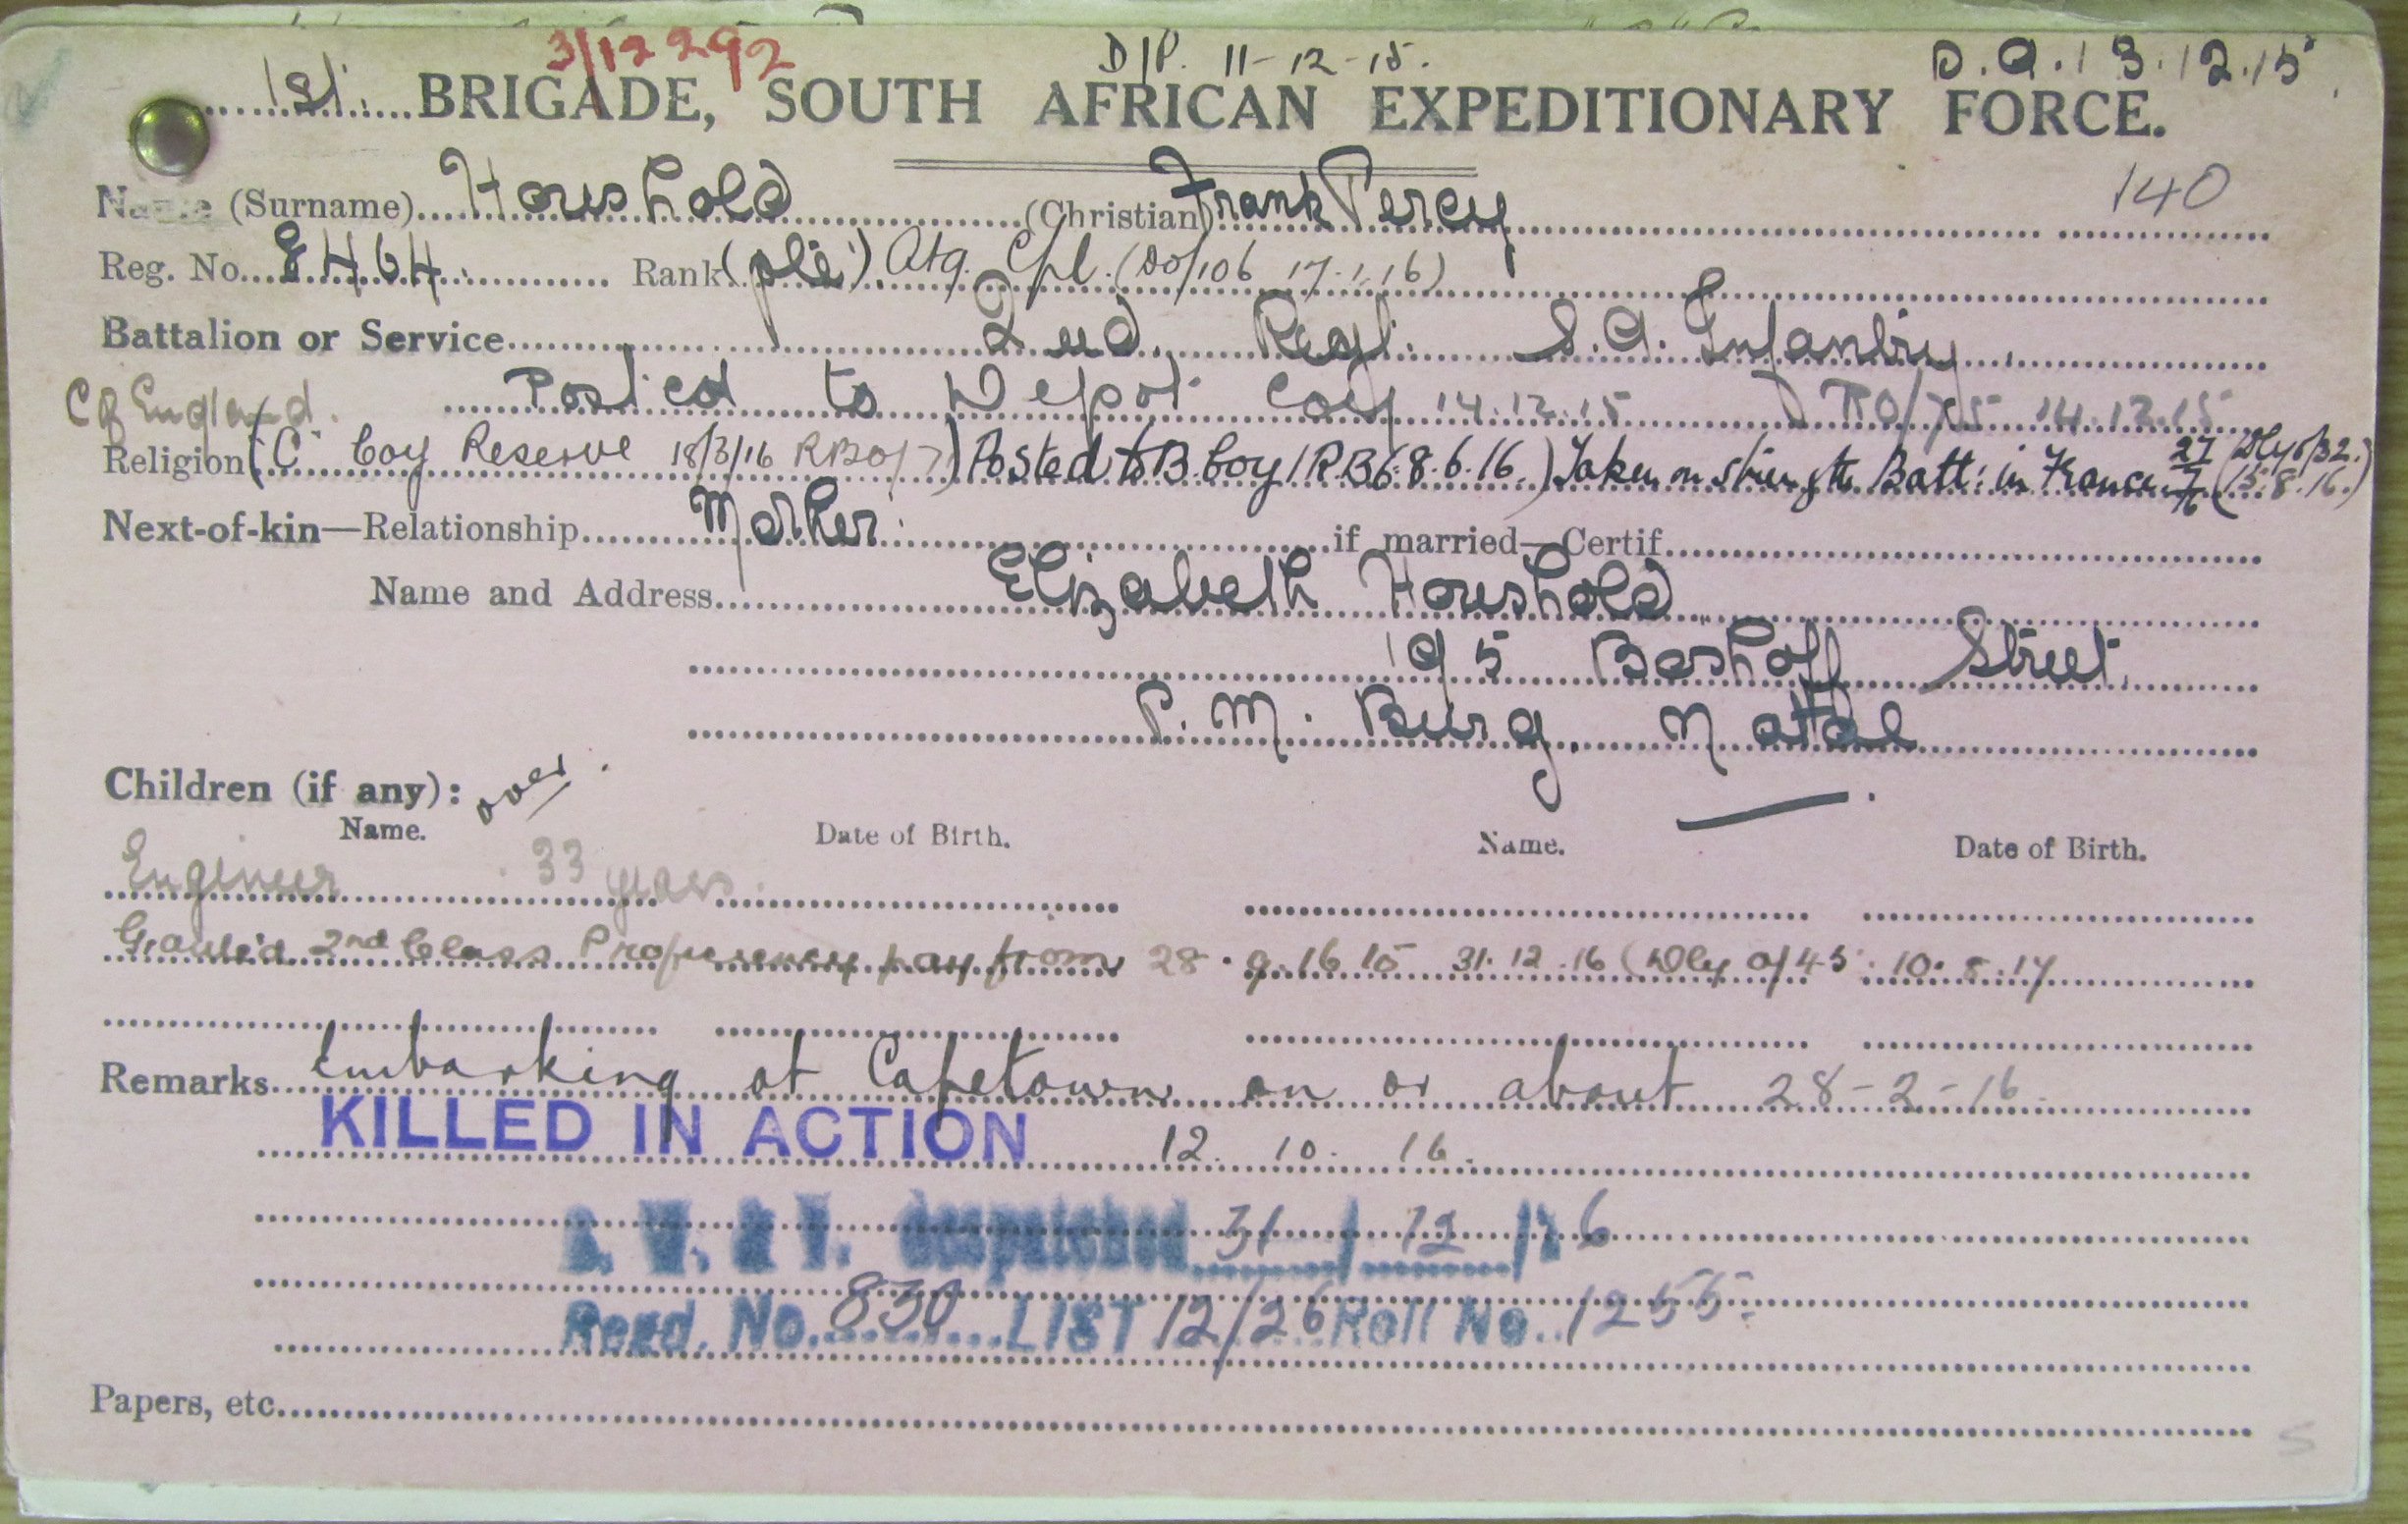 3/12292 D/P. 11-12-15. D.A. 13.12.15
1st. BRIGADE, SOUTH AFRICAN EXPEDITIONARY FORCE.
140
Name (Surname) Houshold (Christian) Frank Percy
Reg. No. 8464. Rank (pte) Atg. Cpl. (DO/106 17.1.16)
Battalion or Service 2nd. Regt. S.A. Infantry
Posted to Depot Coy 14.12.15 RO/75 14.12.15
C of England.
Religion ("C" Coy Reserve 18/3/16 RBO/7) Posted to B Coy (RB 68.6.16.) Taken on strength Batt: in France 27/7/16 (Dly o/32.) (15.8.16.)
Next-of-kin—Relationship Mother. if married—Certif.
Name and Address Elizabeth Houshold
195 Boshoff Street.
P.M. Burg. Natal
Children (if any): over.
Name. Date of Birth. Name. Date of Birth.
Engineer 33 years.
Granted 2nd Class Proficiency pay from 28.9.16 to 31.12.16 (Dly o/45 10.5.17
Remarks Embarking at Capetown on or about 28-2-16.
KILLED IN ACTION 12. 10. 16.
despatched 31/12/16
Regd. No. 830 LIST 12/26 Roll No. 1255.
Papers, etc.
S